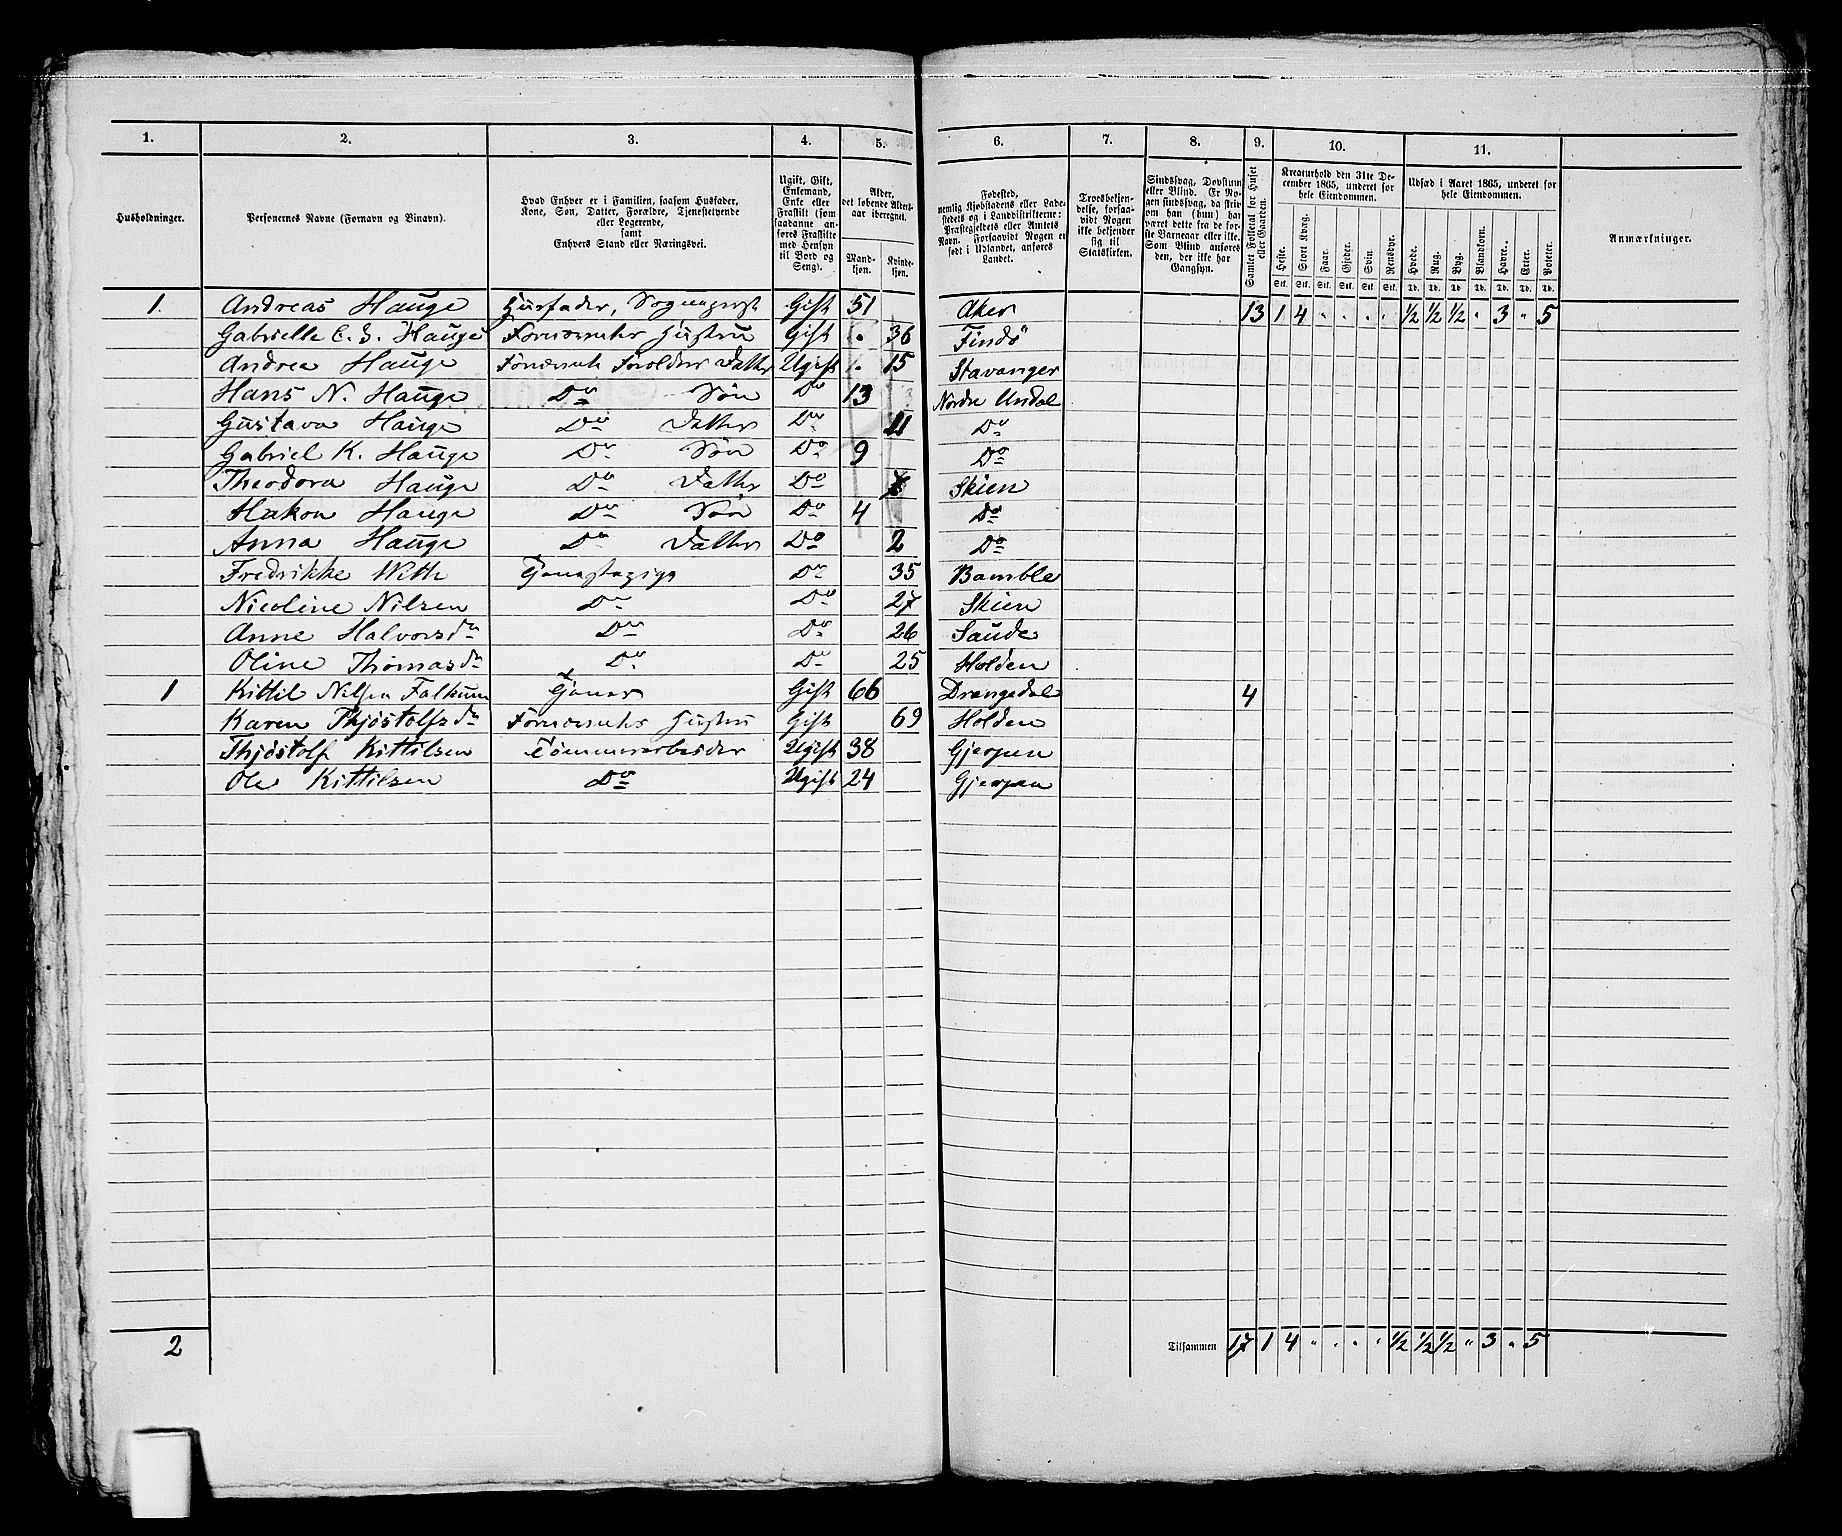 1. 2. 3. 4. 5. 6. 7. 8. 9. 10. 11.
Husholdninger.
Personernes Navne (Fornavn og Binavn).
Hvad Enhver er i Familien, saasom Husfader,
Kone, Søn, Datter, Forældre, Tjenestetyende
eller Logerende,
samt
Enhvers Stand eller Næringsvei.
Ugift, Gift,
Enkemand,
Enke eller
Fraskilt (som
saadanne an-
føres Fraskilte
med Hensyn
til Bord og
Seng).
Alder,
det løbende Alders-
aar iberegnet.
Mand-
kjøn.
Kvinde-
kjøn.
Fødested,
nemlig Kjøbstadens eller Lade-
stedets og i Landdistrikterne:
Præstegjeldets eller Amtets
Navn. Forsaavidt Nogen er
født i Udlandet, anføres
Landet.
Troesbekjen-
delse, forsaa-
vidt Nogen
ikke bekjender
sig til
Statskirken.
Sindssvag, Døvstum
eller Blind. Er No-
gen sindssvag, da skriv
om han (hun) har
været dette fra de før-
ste Barneaar eller ikke.
Som Blind anføres
den, der ikke har
Gangsyn.
Samlet Folketal for Huset
eller Gaarden.
Kreaturhold den 31te De-
cember 1865, underet for
hele Eiendommen.
Heste. Stort Kvæg. Faar. Gjeder. Svin. Rensdyr.
Stk. Stk. Stk. Stk. Stk. Stk.
Udsæd i Aaret 1865, underet for
hele Eiendommen.
Hvede. Rug. Byg. Blandkorn. Havre. Erter. Poteter.
Td. Td. Td. Td. Td. Td. Td.
Anmærkninger.
1. Andreas Hauge Husfader, Sogneprest Gift 51 Aker 13 1 4 . . . . ½ ½ ½ . 3 . 5
Gabrielle C. S. Hauge Fornævntes Hustru Gift . 36 Findö
Andrea Hauge Fornævnte Forældres Datter Ugift . 15 Stavanger
Hans N. Hauge Do Søn Do 13 Nordre Undal
Gustava Hauge Do Datter Do 11 Do
Gabriel K. Hauge Do Søn Do 9 Do
Theodora Hauge Do Datter Do Skien
Hakon Hauge Do Søn Do 4 Do
Anna Hauge Do Datter Do 2 Do
Fredrikke With Tjenestepige Do 35 Bamble
Nicoline Nilsen Do Do 27 Skien
Anne Halvorsdn Do Do 26 Saude
Oline Thomasdn Do Do 25 Holden
1 Kittil Nilsen Falkum Gift 66 Drangedal 4
Karen Thjöstolfsdn Fornævntes Hustru Gift 69 Holden
Thjöstolf Kittilsen Tømmerarbeider Ugift 38 Gjerpen
Ole Kittilsen Do Ugift 24 Gjerpen
2 Tilsammen 17 1 4 . . . . ½ ½ ½ . 3 . 5